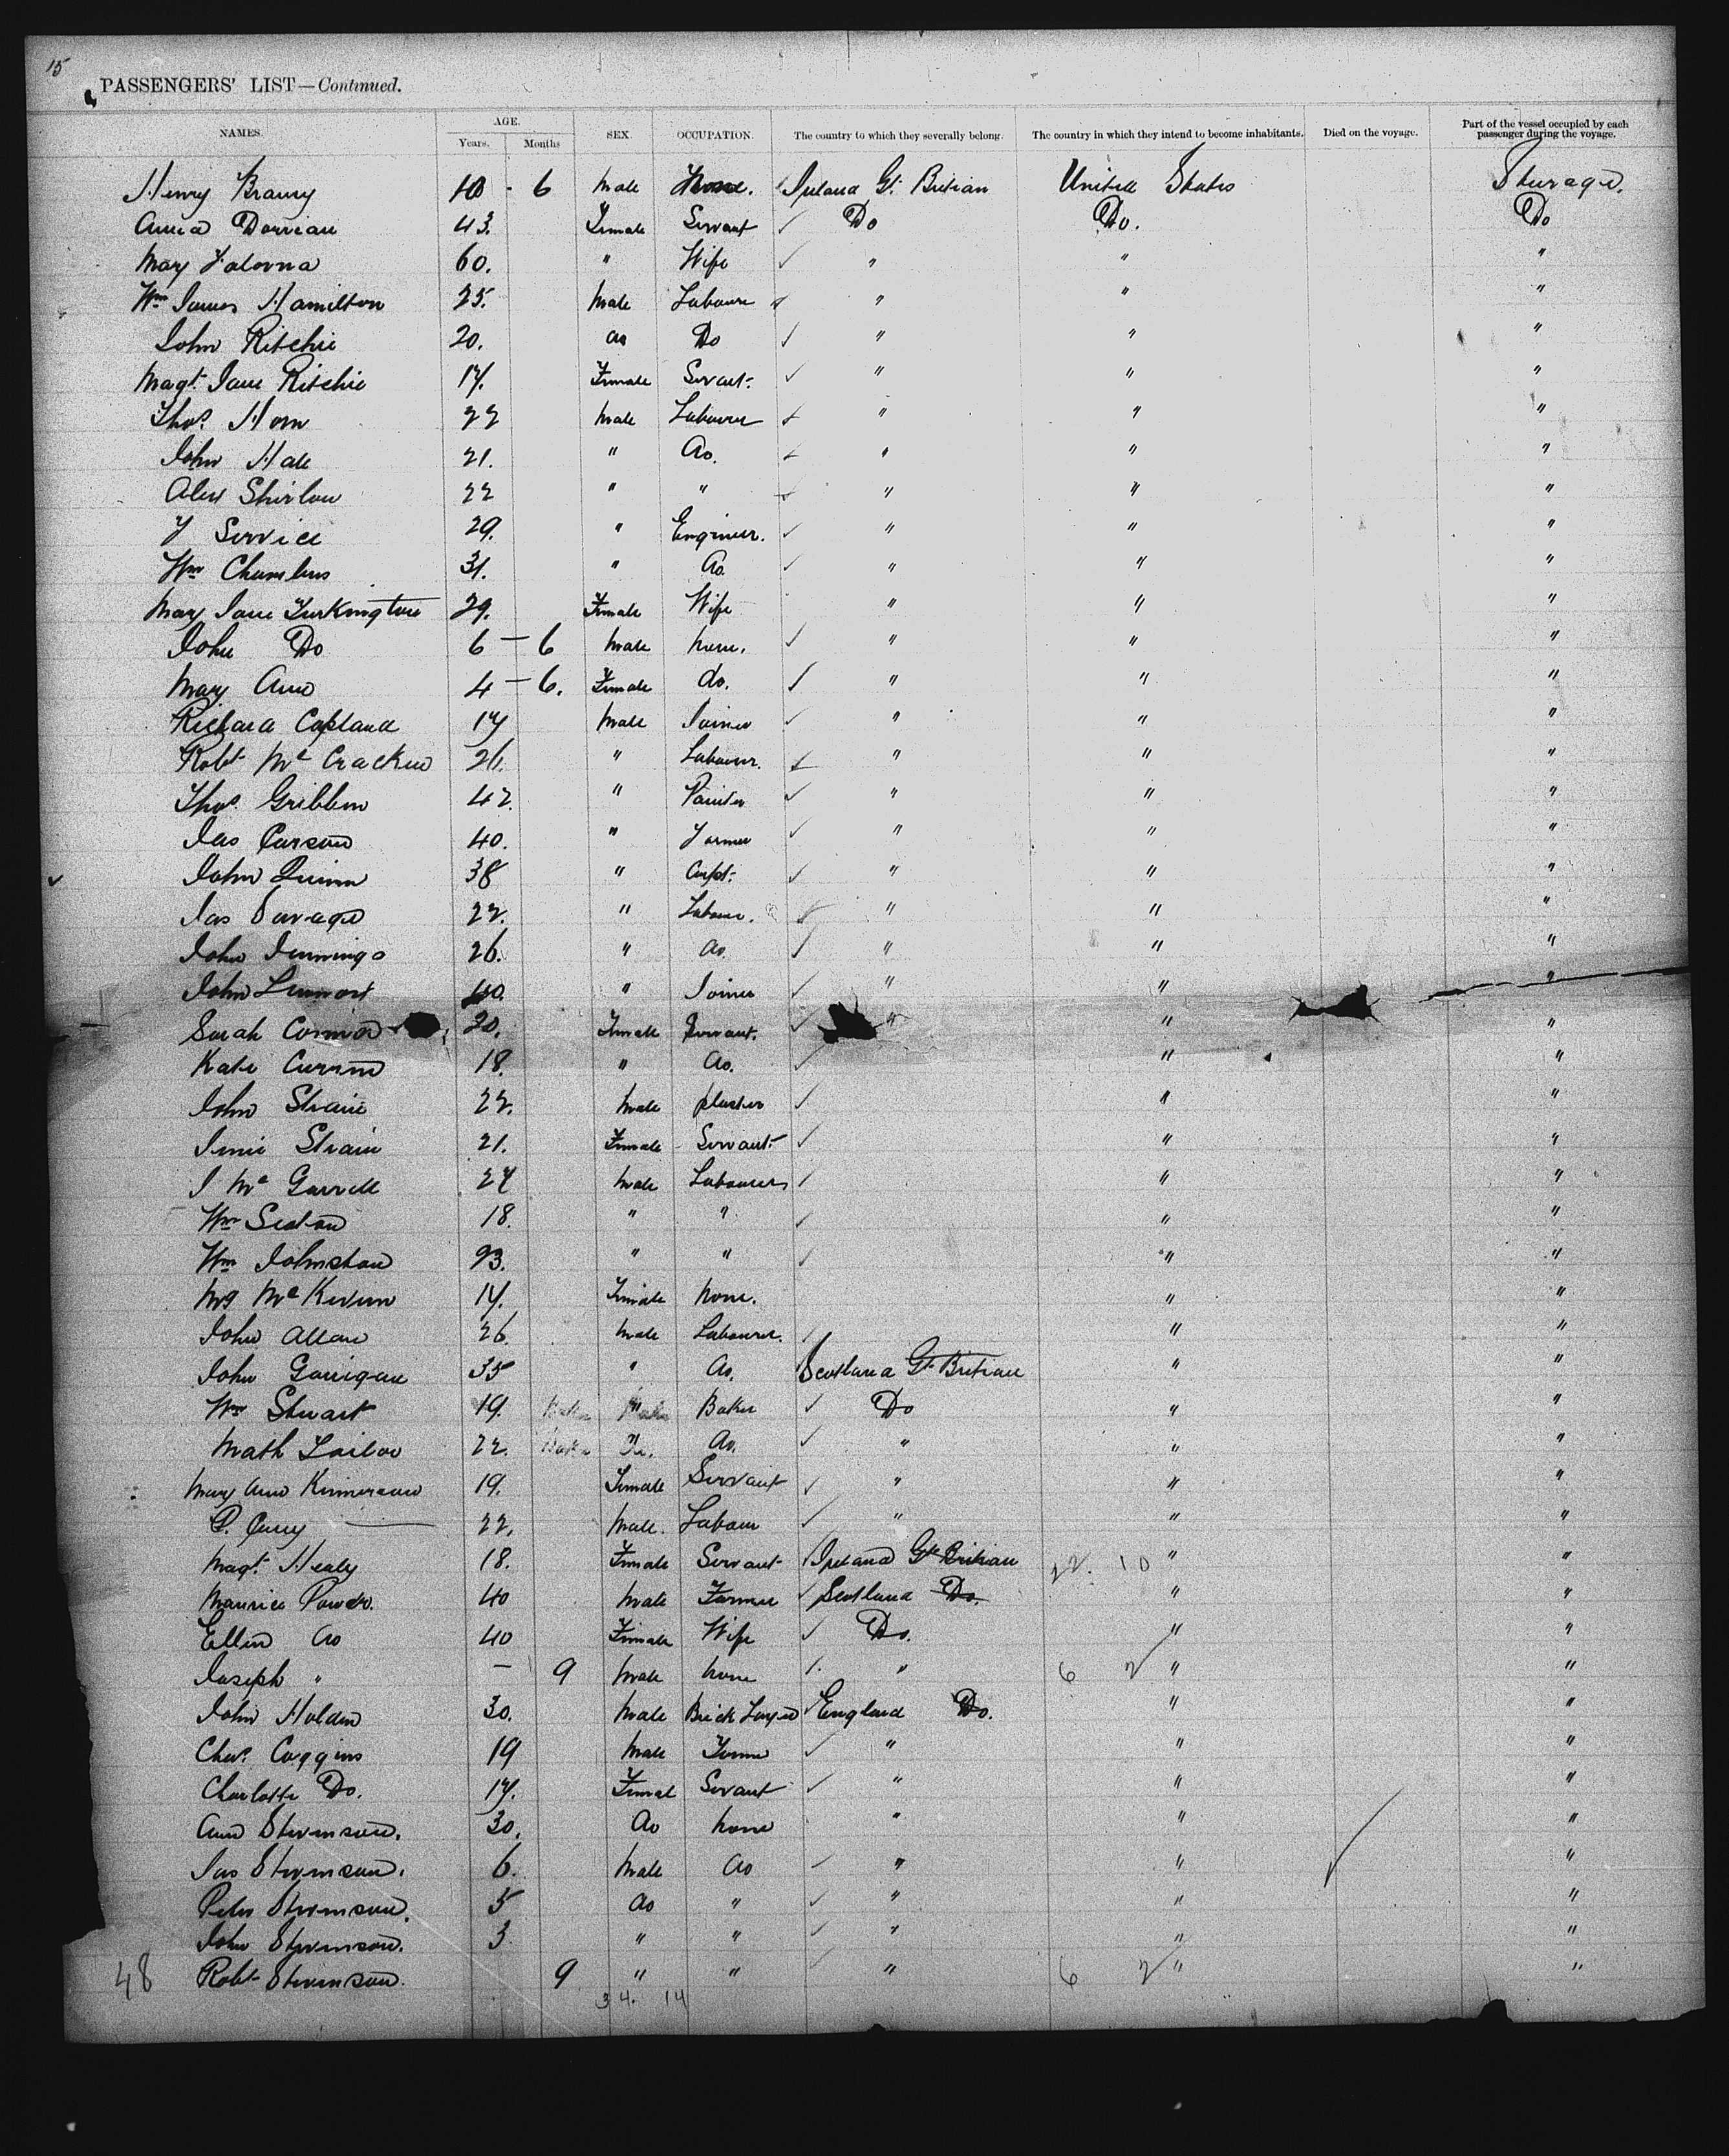 15
PASSENGERS' LIST—Continued.
NAMES. AGE. Years. Months SEX. OCCUPATION. The country to which they severally belong. The country in which they intend to become inhabitants. Died on the voyage. Part of the vessel occupied by each passenger during the voyage.
Henry 10 - 6 Male None. Ireland Gt. Britian United States Sturage.
Anna Dorrian 43. Female Servant Do Do. Do
Mary 60. " Wife " " "
Wm James Hamilton 25. Male Laboure " " "
John Ritchie 20. do Do " " "
Magt. Jane Ritchie 17. Female Servant. " " "
Thos. Horn 22 Male Labourer " " "
John Hale 21. " Do. " " "
Alex Shirlow 22 " " " " "
J Service 29. " Engineer. " " "
Wm 31. " Do. " " "
Mary Jane Turkington 29. Female Wife " " "
John Do 6 — 6 Male none. " " "
Mary Ann 4 — 6. Female do. " " "
Richard Copland 17 Male Joiner " " "
Robt Mc Cracken 26. " Labourer. " " "
Thos. Gribben 42. " Painter " " "
Jas Carson 40. " Farmer " " "
John Quinn 38 " Carpt. " " "
Jas Savage 22. " Laboure. " " "
John Jennings 26. " do. " " "
John 40. " Joiner " " "
Sarah Connor 30. Female Servant. " " "
Kate Curran 18. " Do. " "
John Strain 22. Male plaster " "
Strain 21. Female Servant " "
J Mc 27 Male Labourers " "
Wm Seaton 18. " " " "
Wm Johnston 23. " " " "
Mg Mc 17. Female None. " "
John Allan 26 Male Labourer. " "
John 35 " Do. Scotland Gt. Britian " "
Wm Stuart 19. " Baker Do " "
Math Tailor 22. Do. " " "
Mary Ann 19. Female Servant " " "
P. 22. Male. Labour " " "
Magt. Healy 18. Female Servant Ireland Gt Britian 22. 10 " "
Maurice Power. 40 Male Farmer Scotland Do. " "
Ellen do 40 Female Wife Do. " "
Joseph " — 9 Male none " 6 2 " "
John Holden 30. Male Brick Layer England Do. " "
Chas. Coggins 19 Male " " "
Charlotte Do. 17. Femal Servant " " "
Ann Stevenson. 30. Do none " " "
Jas Stevenson. 6. Male do " " "
Peter Stevenson. 5 do " " " "
John Stevenson. 3 " " " " "
48 Robt Stevenson. 9 " " " 6 2 " "
34. 14